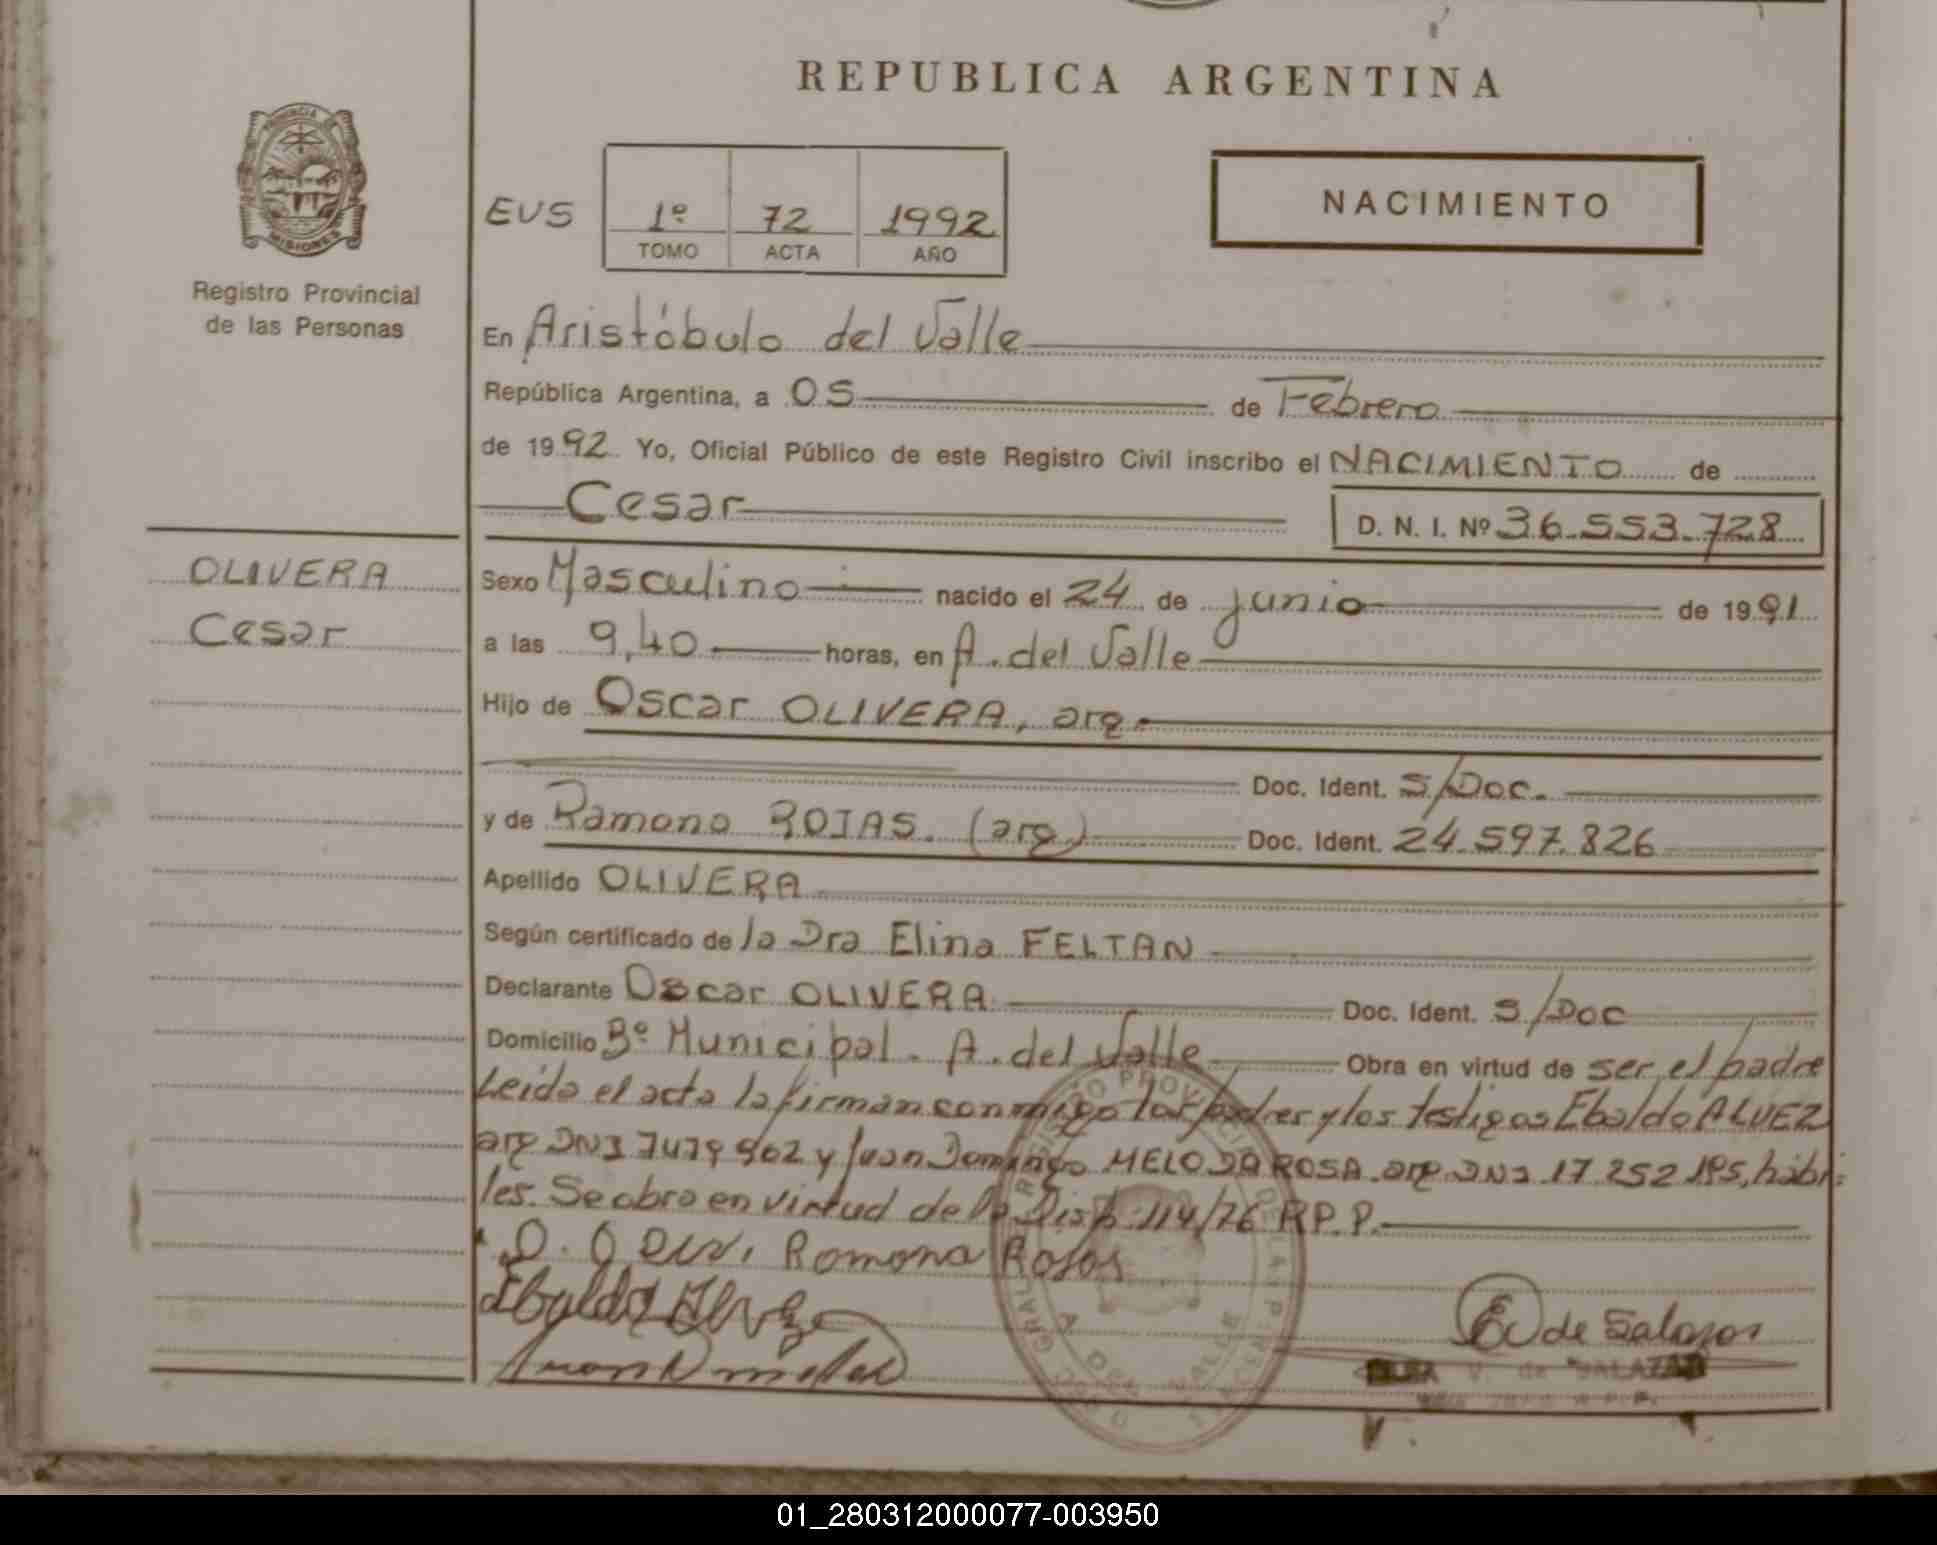 REPUBLICA ARGENTINA
PROVINCIA DE
MISIONES
Registro Provincial
de las Personas
EVS
1º 72 1992
TOMO ACTA AÑO
NACIMIENTO
En Aristóbulo del Valle
República Argentina, a 05 de Febrero
de 1992 Yo, Oficial Público de este Registro Civil inscribo el NACIMIENTO de
Cesar D. N. I. Nº 36.553.728
OLIVERA
Cesar
Sexo Masculino nacido el 24 de junio de 1991
a las 9,40 horas, en A. del Valle
Hijo de Oscar OLIVERA, arg.
Doc. Ident. S/Doc.
y de Ramona ROJAS. (arg) Doc. Ident. 24.597.826
Apellido OLIVERA
Según certificado de la Dra Elina FELTAN
Declarante Oscar OLIVERA Doc. Ident. S/Doc
Domicilio Bº Municipal. A. del Valle Obra en virtud de ser el padre
Leida el acta la firman conmigo los padres y los testigos Ebaldo ALVEZ
arg DNI 7479902 y Juan Domingo MELO DA ROSA. arg DNI 17 252 195, hábi-
les. Se obra en virtud de la Disp. 114/76 R.P.P.
Ramona Rojas
Ebaldo Alvez
E V de Salazar
ELSA V. de SALAZAR
REGISTRO PROVINCIAL DE LAS PERSONAS
A. DEL VALLE
01_280312000077-003950